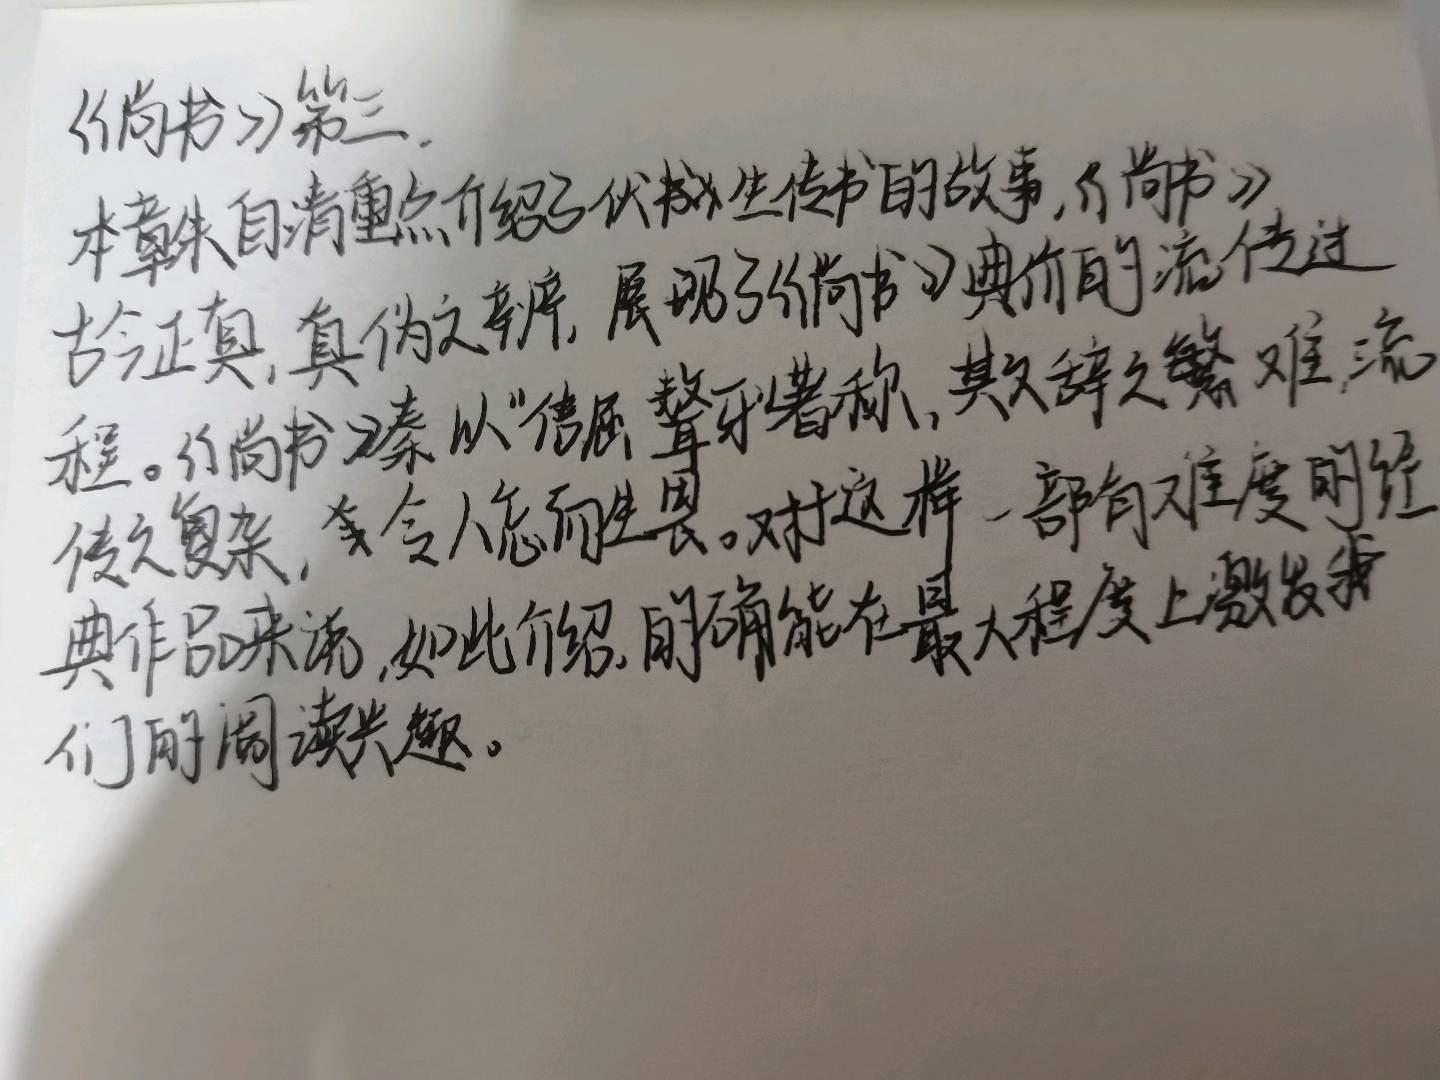 《尚书》第三.
本章朱自清重点介绍了伏生传书的故事,《尚书》
古今正真,真伪文辨,展现了《尚书》典价的流传过
程。《尚书》素以"佶屈聱牙"著称,其文辞之繁难,流
传之复杂,令人怎而生畏。对于这样一部有难度的经
典作品来说,如此介绍,的确能在最大程度上激发我
们的阅读兴趣。